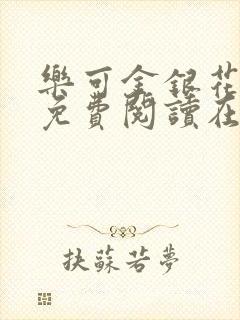 樂可金銀花
免費閱讀在
扶蘇若夢